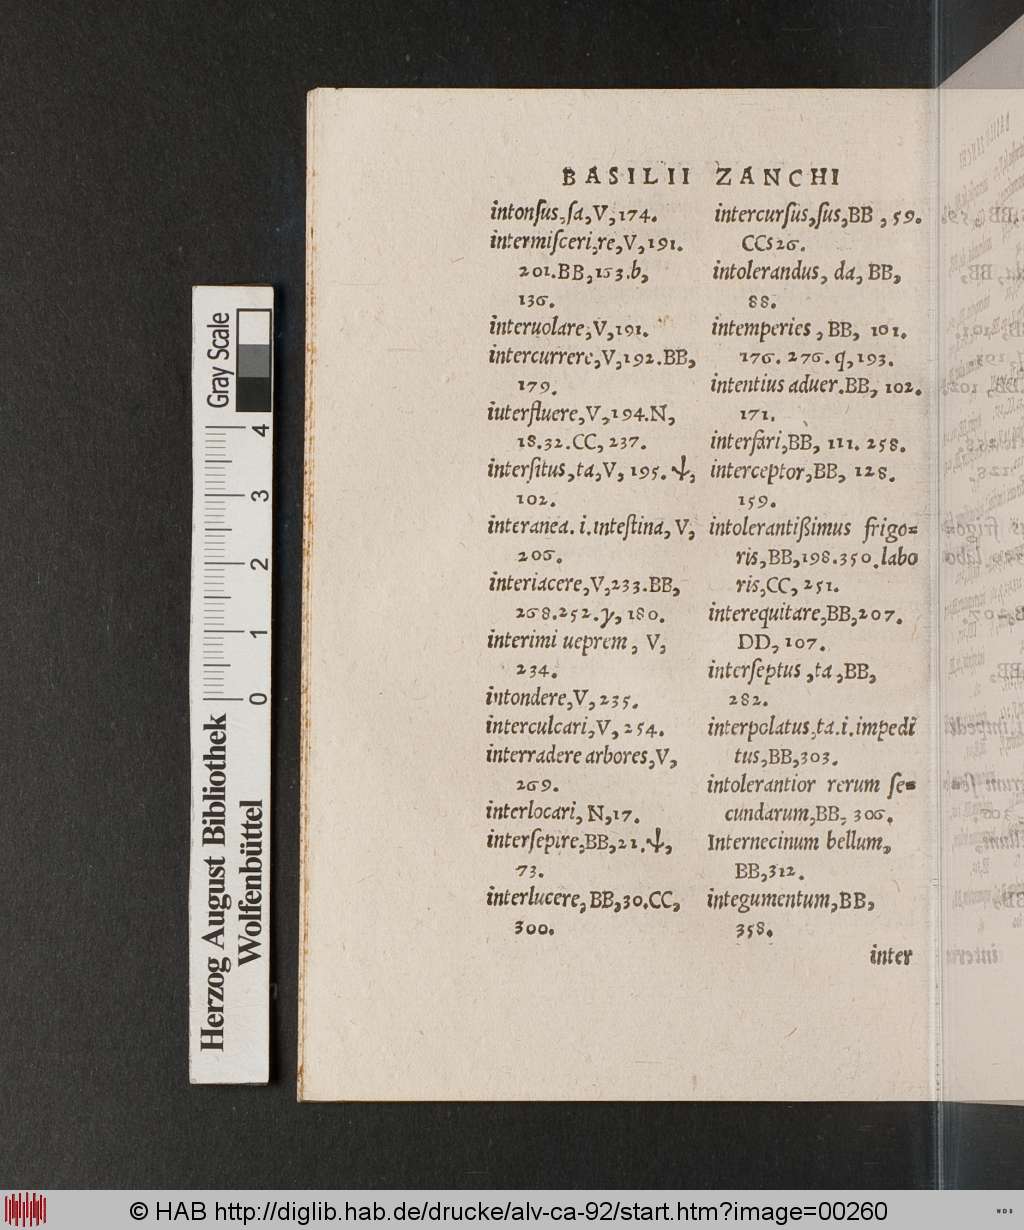 BASILII ZANCHI
intonsus,sa,V,174.
intermisceri,re,V,191.
201.BB,153.b,
136.
interuolare,V,191.
intercurrere,V,192.BB,
179.
iuterfluere,V,194.N,
18.32.CC,237.
intersitus,ta,V,195.Ψ,
102.
interanea.i.intestina,V,
206.
interiacere,V,233.BB,
268.252.y,180.
interimi ueprem, V,
234.
intondere,V,235.
interculcari,V,254.
interradere arbores,V,
269.
interlocari, N,17.
intersepire,BB,21.Ψ,
73.
interlucere,BB,30.CC,
300.
intercursus,sus,BB,59.
CC526.
intolerandus, da, BB,
88.
intemperies, BB, 101.
176. 276. q,193.
intentius aduer.BB, 102.
171.
intersari,BB, 111. 258.
interceptor,BB, 128.
159.
intolerantißimus frigo=
ris,BB,198.350.labo
ris,CC, 251.
interequitare,BB,207.
DD,107.
interseptus,ta,BB,
282.
interpolatus,ta.i.impedi
tus,BB,303.
intolerantior rerum se=
cundarum,BB, 306.
Internecinum bellum,
BB,312.
integumentum,BB,
358.
inter
Gray Scale
4
3
2
1
0
Herzog August Bibliothek
Wolfenbüttel
© HAB http://diglib.hab.de/drucke/alv-ca-92/start.htm?image=00260
WDB